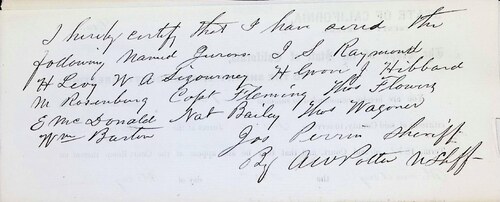 I hereby certify that I have served the
following named Jurors I S Raymond
H Levy W A Sigourney H J Hibbard
M Rosenburg Capt Fleming Thos Flowers
E McDonald Nat Bailey Thos Wagoner
Wm Barton
Jos Perrin Sheriff
By A W Potter